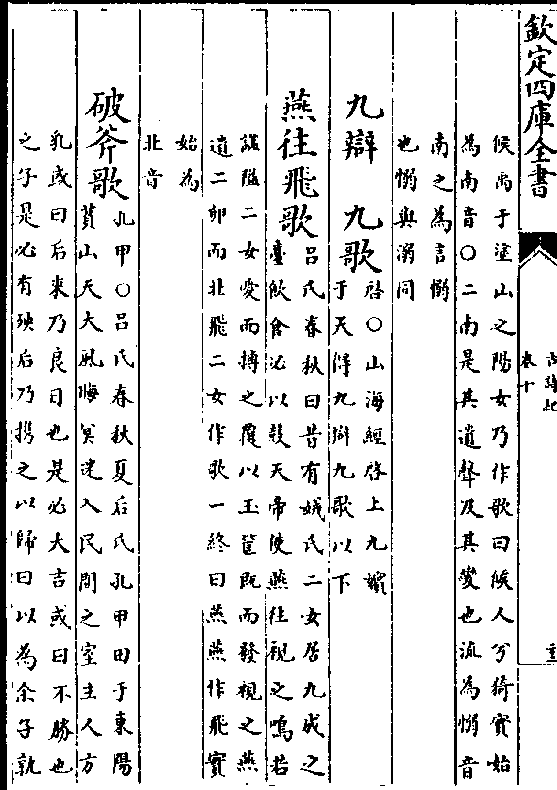 欽定四庫全書
古詩紀
卷十
候禹于塗山之陽女乃作歌曰候人兮猗實始
為南音○二南是其遺聲及其變也流為懰音
南之為言懰
也懰與溺同
九辯 九歌
啓○山海經啓上九嬪
于天得九辯九歌以下
燕往飛歌
呂氏春秋曰昔有娀氏二女居九成之
臺飲食必以鼓天帝使燕往視之鳴若
謚隘二女愛而搏之覆以玉筐既而發視之燕
遺二卵而北飛二女作歌一終曰燕燕作飛實
始為
北音
破斧歌
孔甲○呂氏春秋夏后氏孔甲田于東陽
萯山天大風晦冥迷入民間之室主人方
乳或曰后來乃良日也是必大吉或曰不勝也
之子是必有殃后乃携之以歸曰以為余子孰